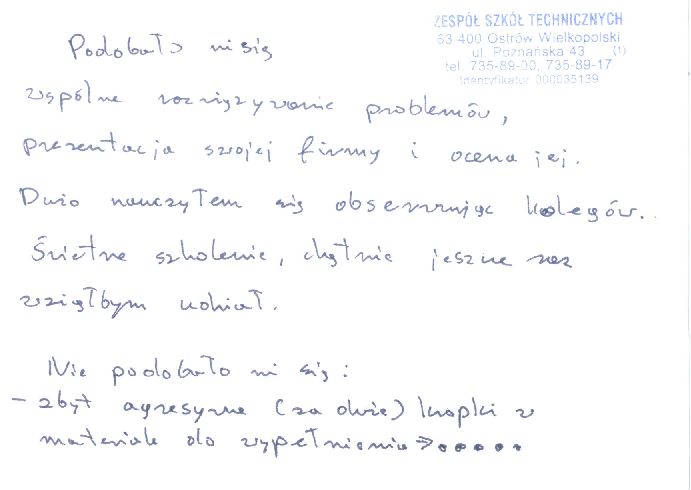 ZESPÓŁ SZKÓŁ TECHNICZNYCH
63-400 Ostrów Wielkopolski
ul. Poznańska 43 (1)
tel. 735-89-00, 735-89-17
Identyfikator 000035139
Podobało mi się
wspólne rozwiązywanie problemów,
prezentacja swojej firmy i ocena jej.
Dużo nauczyłem się obserwując kolegów..
Świetne szkolenie, chętnie jeszcze raz
wziąłbym udział.
Nie podobało mi się:
- zbyt agresywne (za duże) kropki w
materiale do wypełnienia => • • • • •